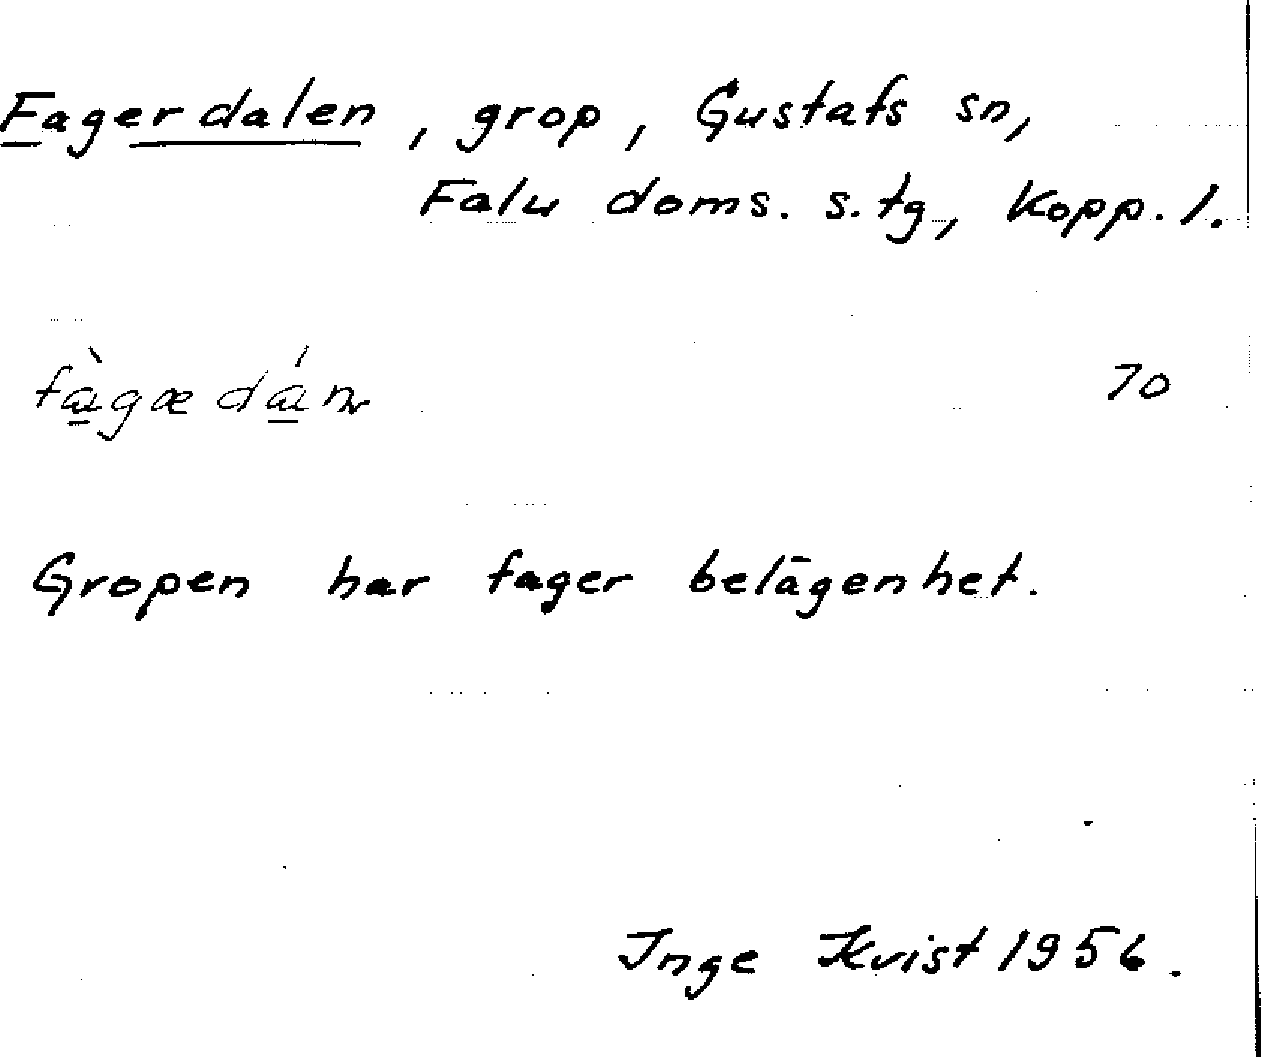 Fagerdalen, grop, Gustafs sn,
Falu doms. s. tg, Kopp. l.
fàgædán 70
Gropen har fager belägenhet.
Inge Kvist 1956.